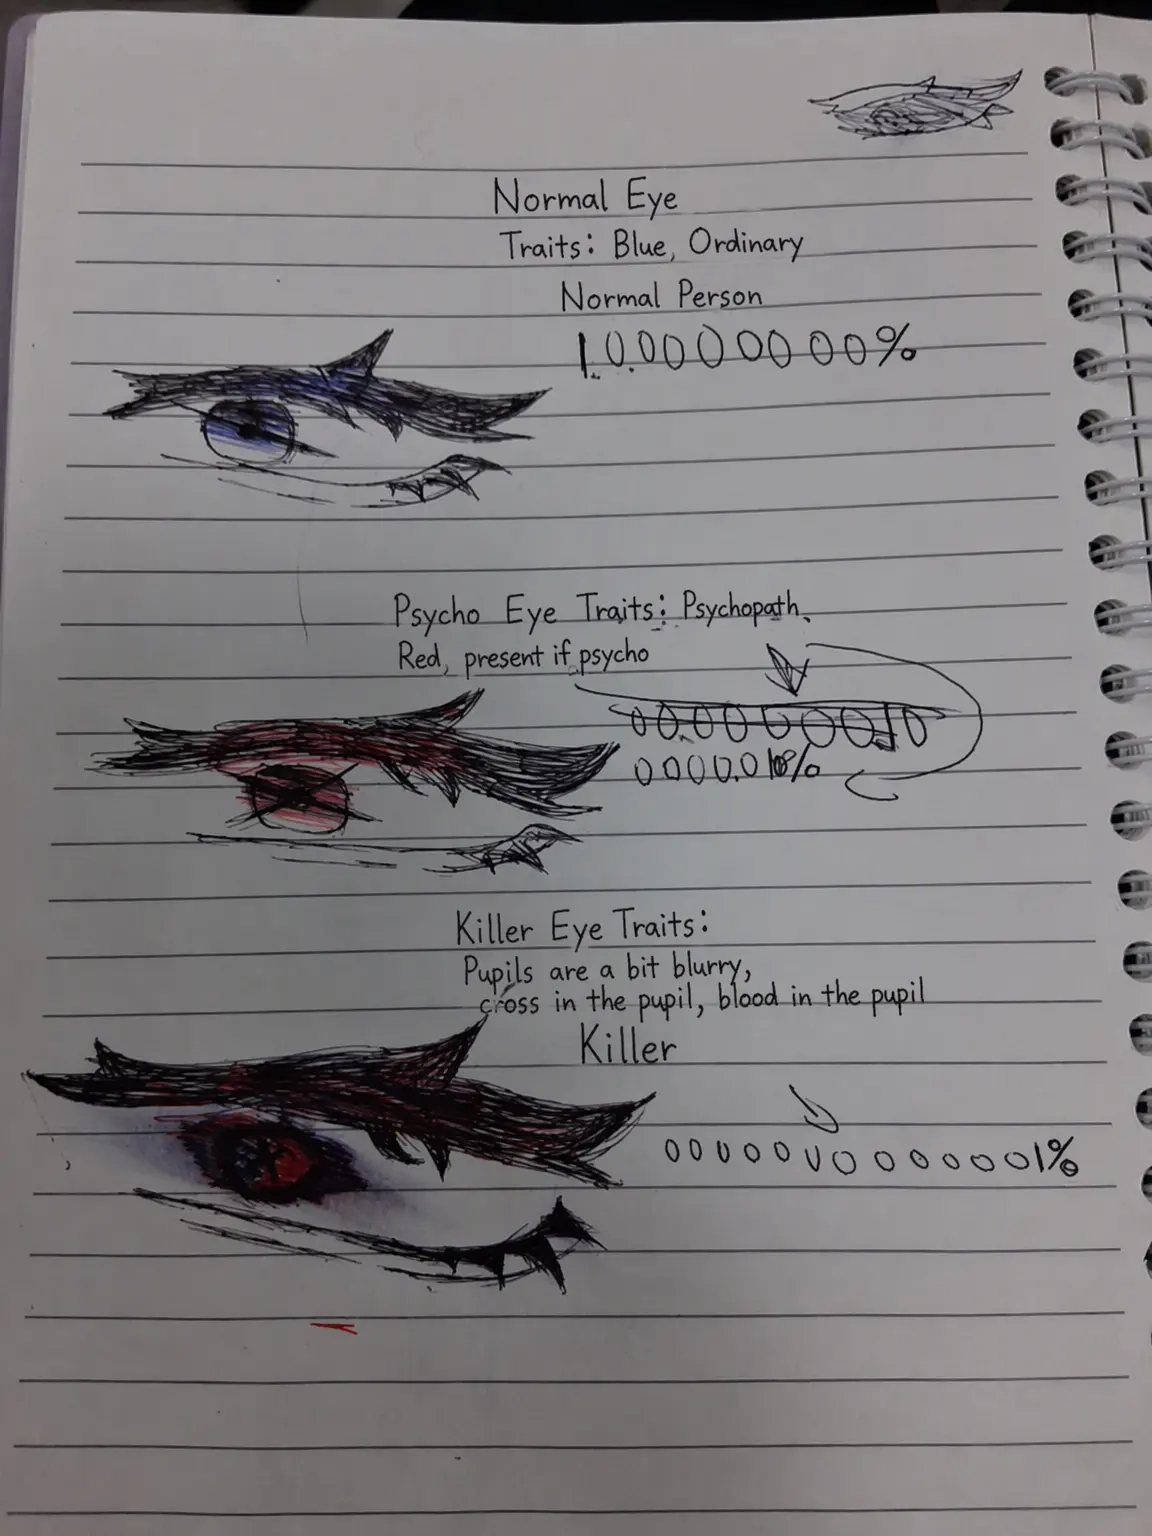 Normal Eye
Traits: Blue, Ordinary
Normal Person
1.0.000000 00%
Psycho Eye Traits: Psychopath.
Red, present if psycho
0000.0
Killer Eye Traits:
Pupils are a bit blurry,
cross in the pupil, blood in the pupil
Killer
0000000000001%